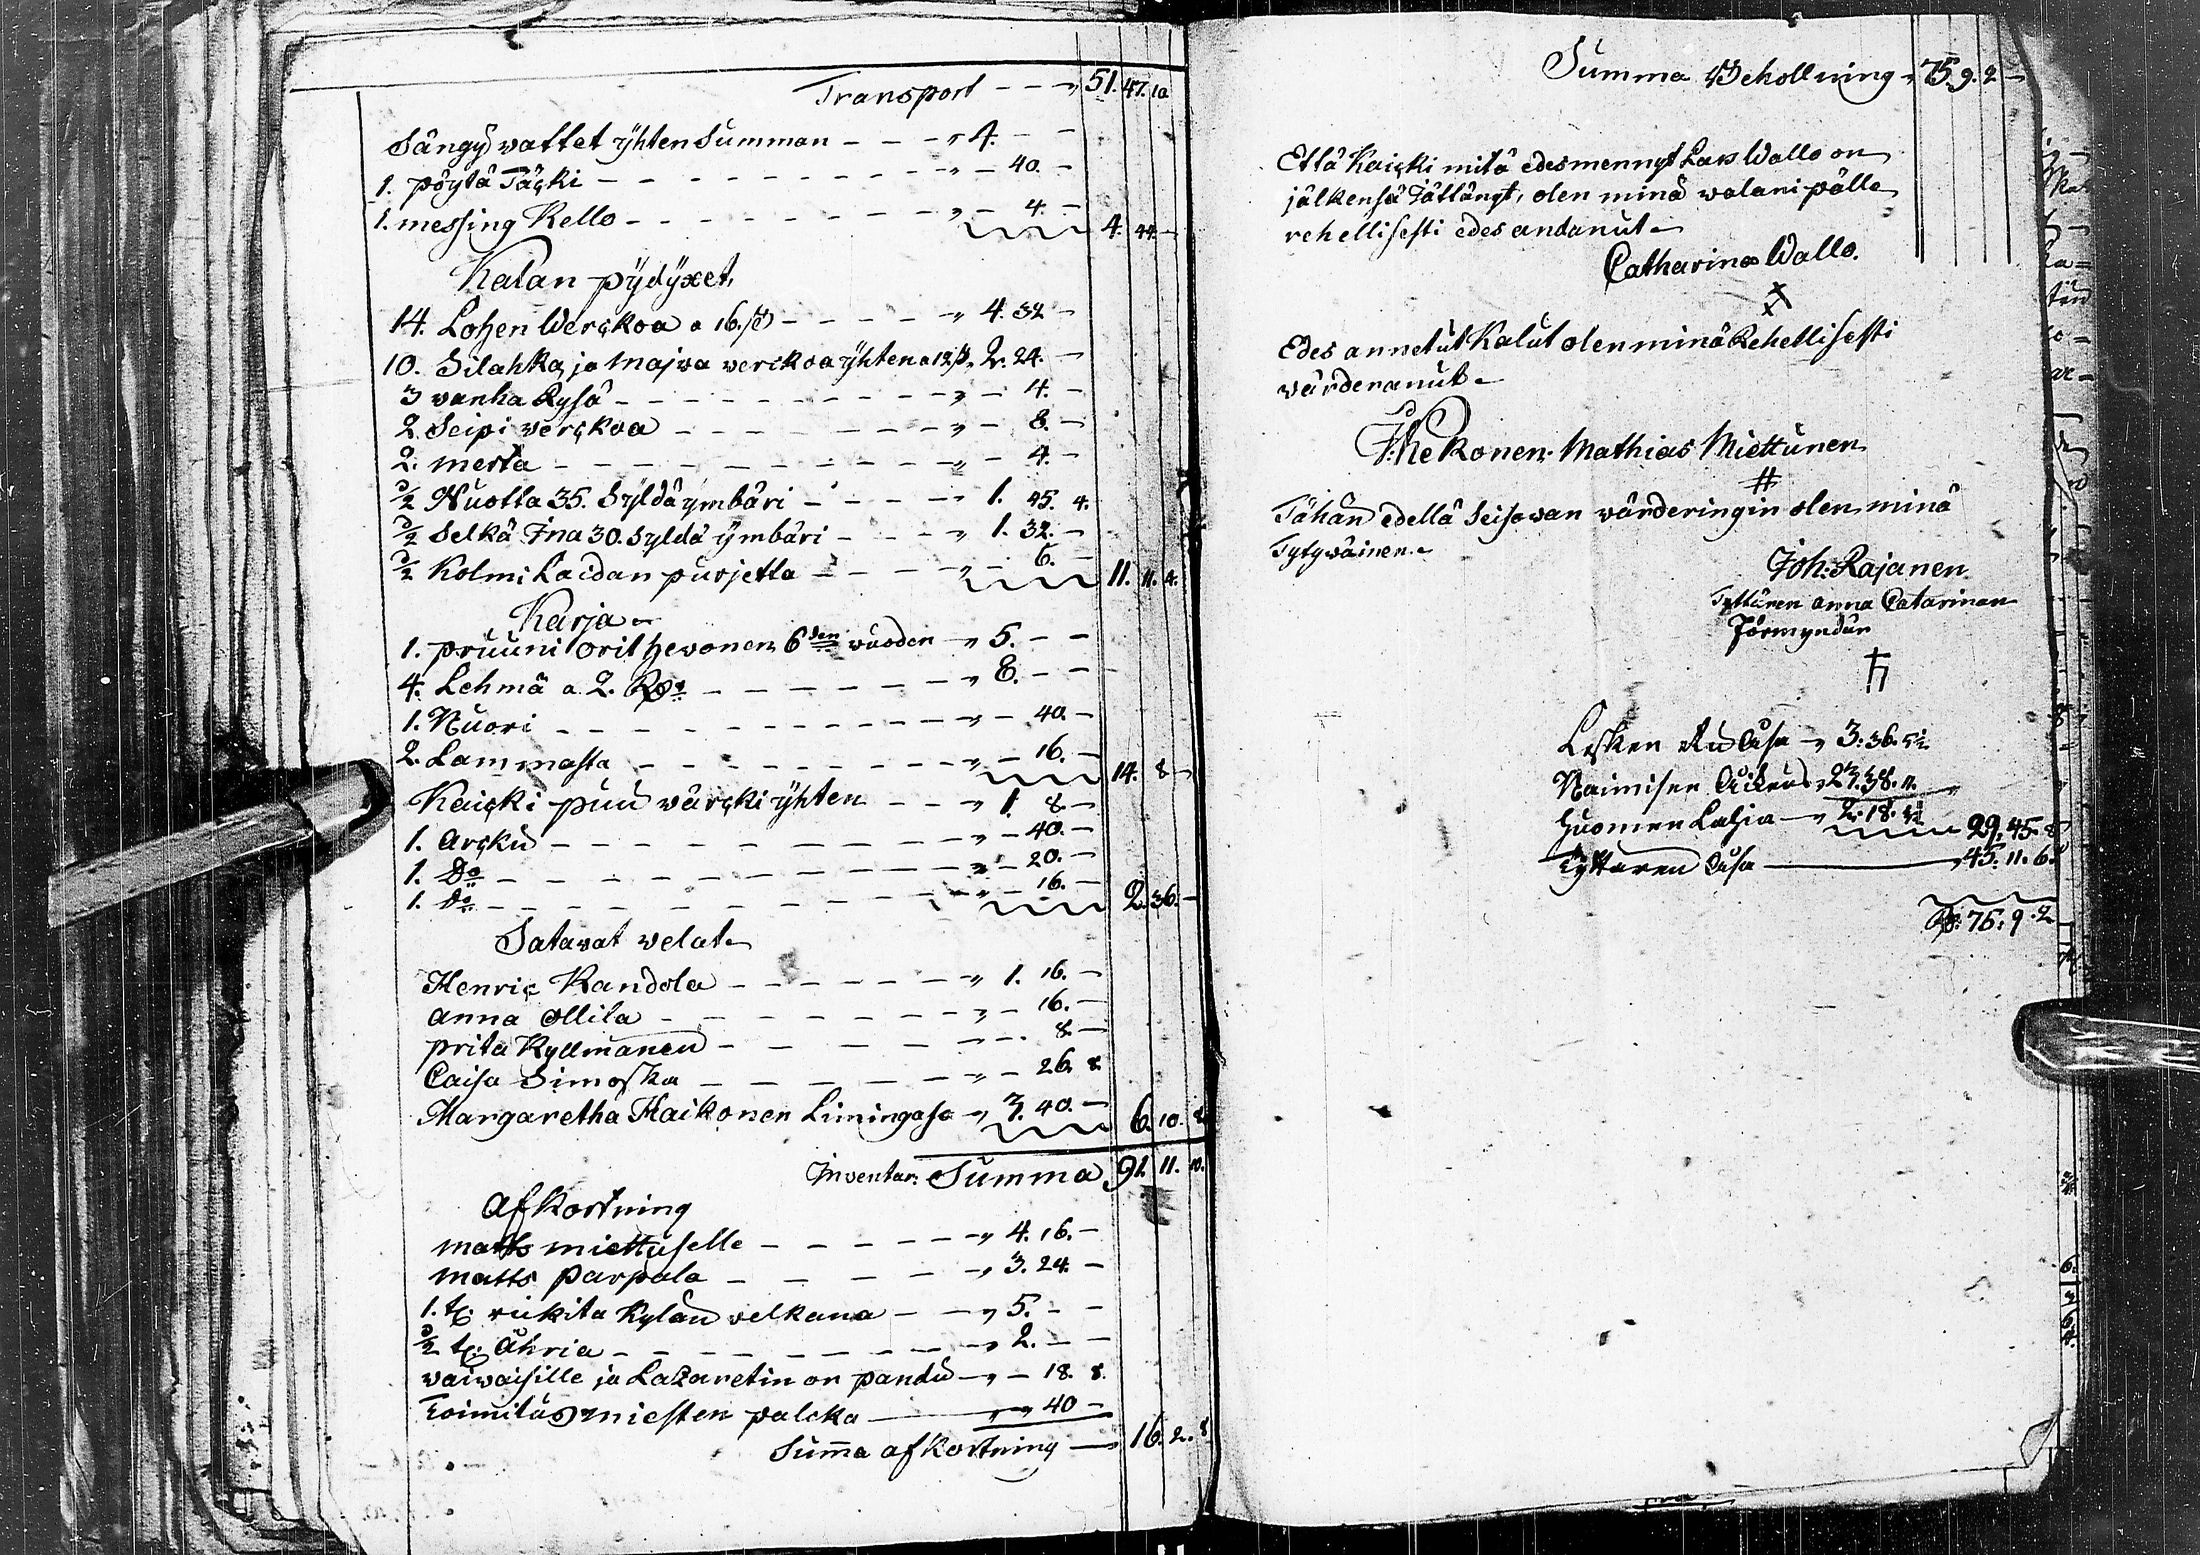 Transport - - - " 51. 47. 10
Sängÿ vattet ÿhten Summan - - - " 4. - -
1. pöytä Täcki - - - - - - " - 40. -
1. messing Kello - - - - - - " - 4. - 4. 44. -
Kalan pÿdÿxet.
14. Lohen Werckoa a 16. ß - - - - " 4. 32 -
10. Silahka, ja Majva verckoa ÿhten a 12 ß " 2. 24. -
3 vanha Rysä - - - - - - " - 4. -
2. Seipi verckoa - - - - - " - 8. -
2. merta - - - - - - - " - 4. -
1/2 Nuotta 35. Syldä ymbäri - - - - " 1. 45. 4.
1/2 Selkä Ina 30. Syldä ÿmbäri - - - " 1. 32. -
1/2 Kolmi Laidan purjetta - - - - " - 6. - 11. 11. 4.
Karja
1. pruuni orit hevonen 6 den vuoden - " 5. - -
4. Lehmä a 2. Rd - - - - - - " 8. - -
1. Nuori - - - - - - - - " - 40. -
2. Lammasta - - - - - - - " - 16. - 14. 8 -
Kaicki puu värcki ÿhten - - - " 1 8. -
1. Arcku - - - - - - - " - 40. -
1. Do - - - - - - - - " - 20. -
1. Do - - - - - - - - " - 16. - 2. 36. -
Satavat velat
Henric Kandola - - - - - - " 1. 16. -
anna Ollila - - - - - - " - 16. -
prita Kyllmänen - - - - - - - 8. -
Caisa Simoska - - - - - " - 26. 8
Margaretha Haikonen Limingasa - " 3. 40. - 6. 10. 8
Inventar: Summa 91. 11. 10.
Afkortning
matts miettuselle - - - - - " 4. 16. -
matts parpala - - - - - " 3. 24. -
1. t: rukita Kylän velkana - - " 5. - -
1/2 t: Ähria - - - - - - - " 2. - -
vaivaisille ja Lazaretin on pandu - " - 18. 8.
Toimitus miesten palcka - " - 40 -
Suma afkortning - 16. 2. 8
Summa Behollning " 75. 9. 2 -
Että Kaicki mitä edesmennyt Lars Wallo on
jälkensä Jättänyt, olen minä valani pälle
rehellisesti edes andanut
Catharina Wallo.
Edes annetut Kalut olen minä Rehellisesti
värderanut
J: Kekonen. Mathias Miettunen
Tähän edellä Seisovan värderingin olen minä
Tytyväinen.
Joh: Rajanen
Tyttären anna Catarinan
Förmyndär
Lesken Osa " 3: 36. 5 1/2
Naimisen " 23. 38. 11.
Huomen Lahja " 2. 18. 29. 45. 8
Tyttaren Osa " 45: 11. 6.
Rd: 75: 9. 2